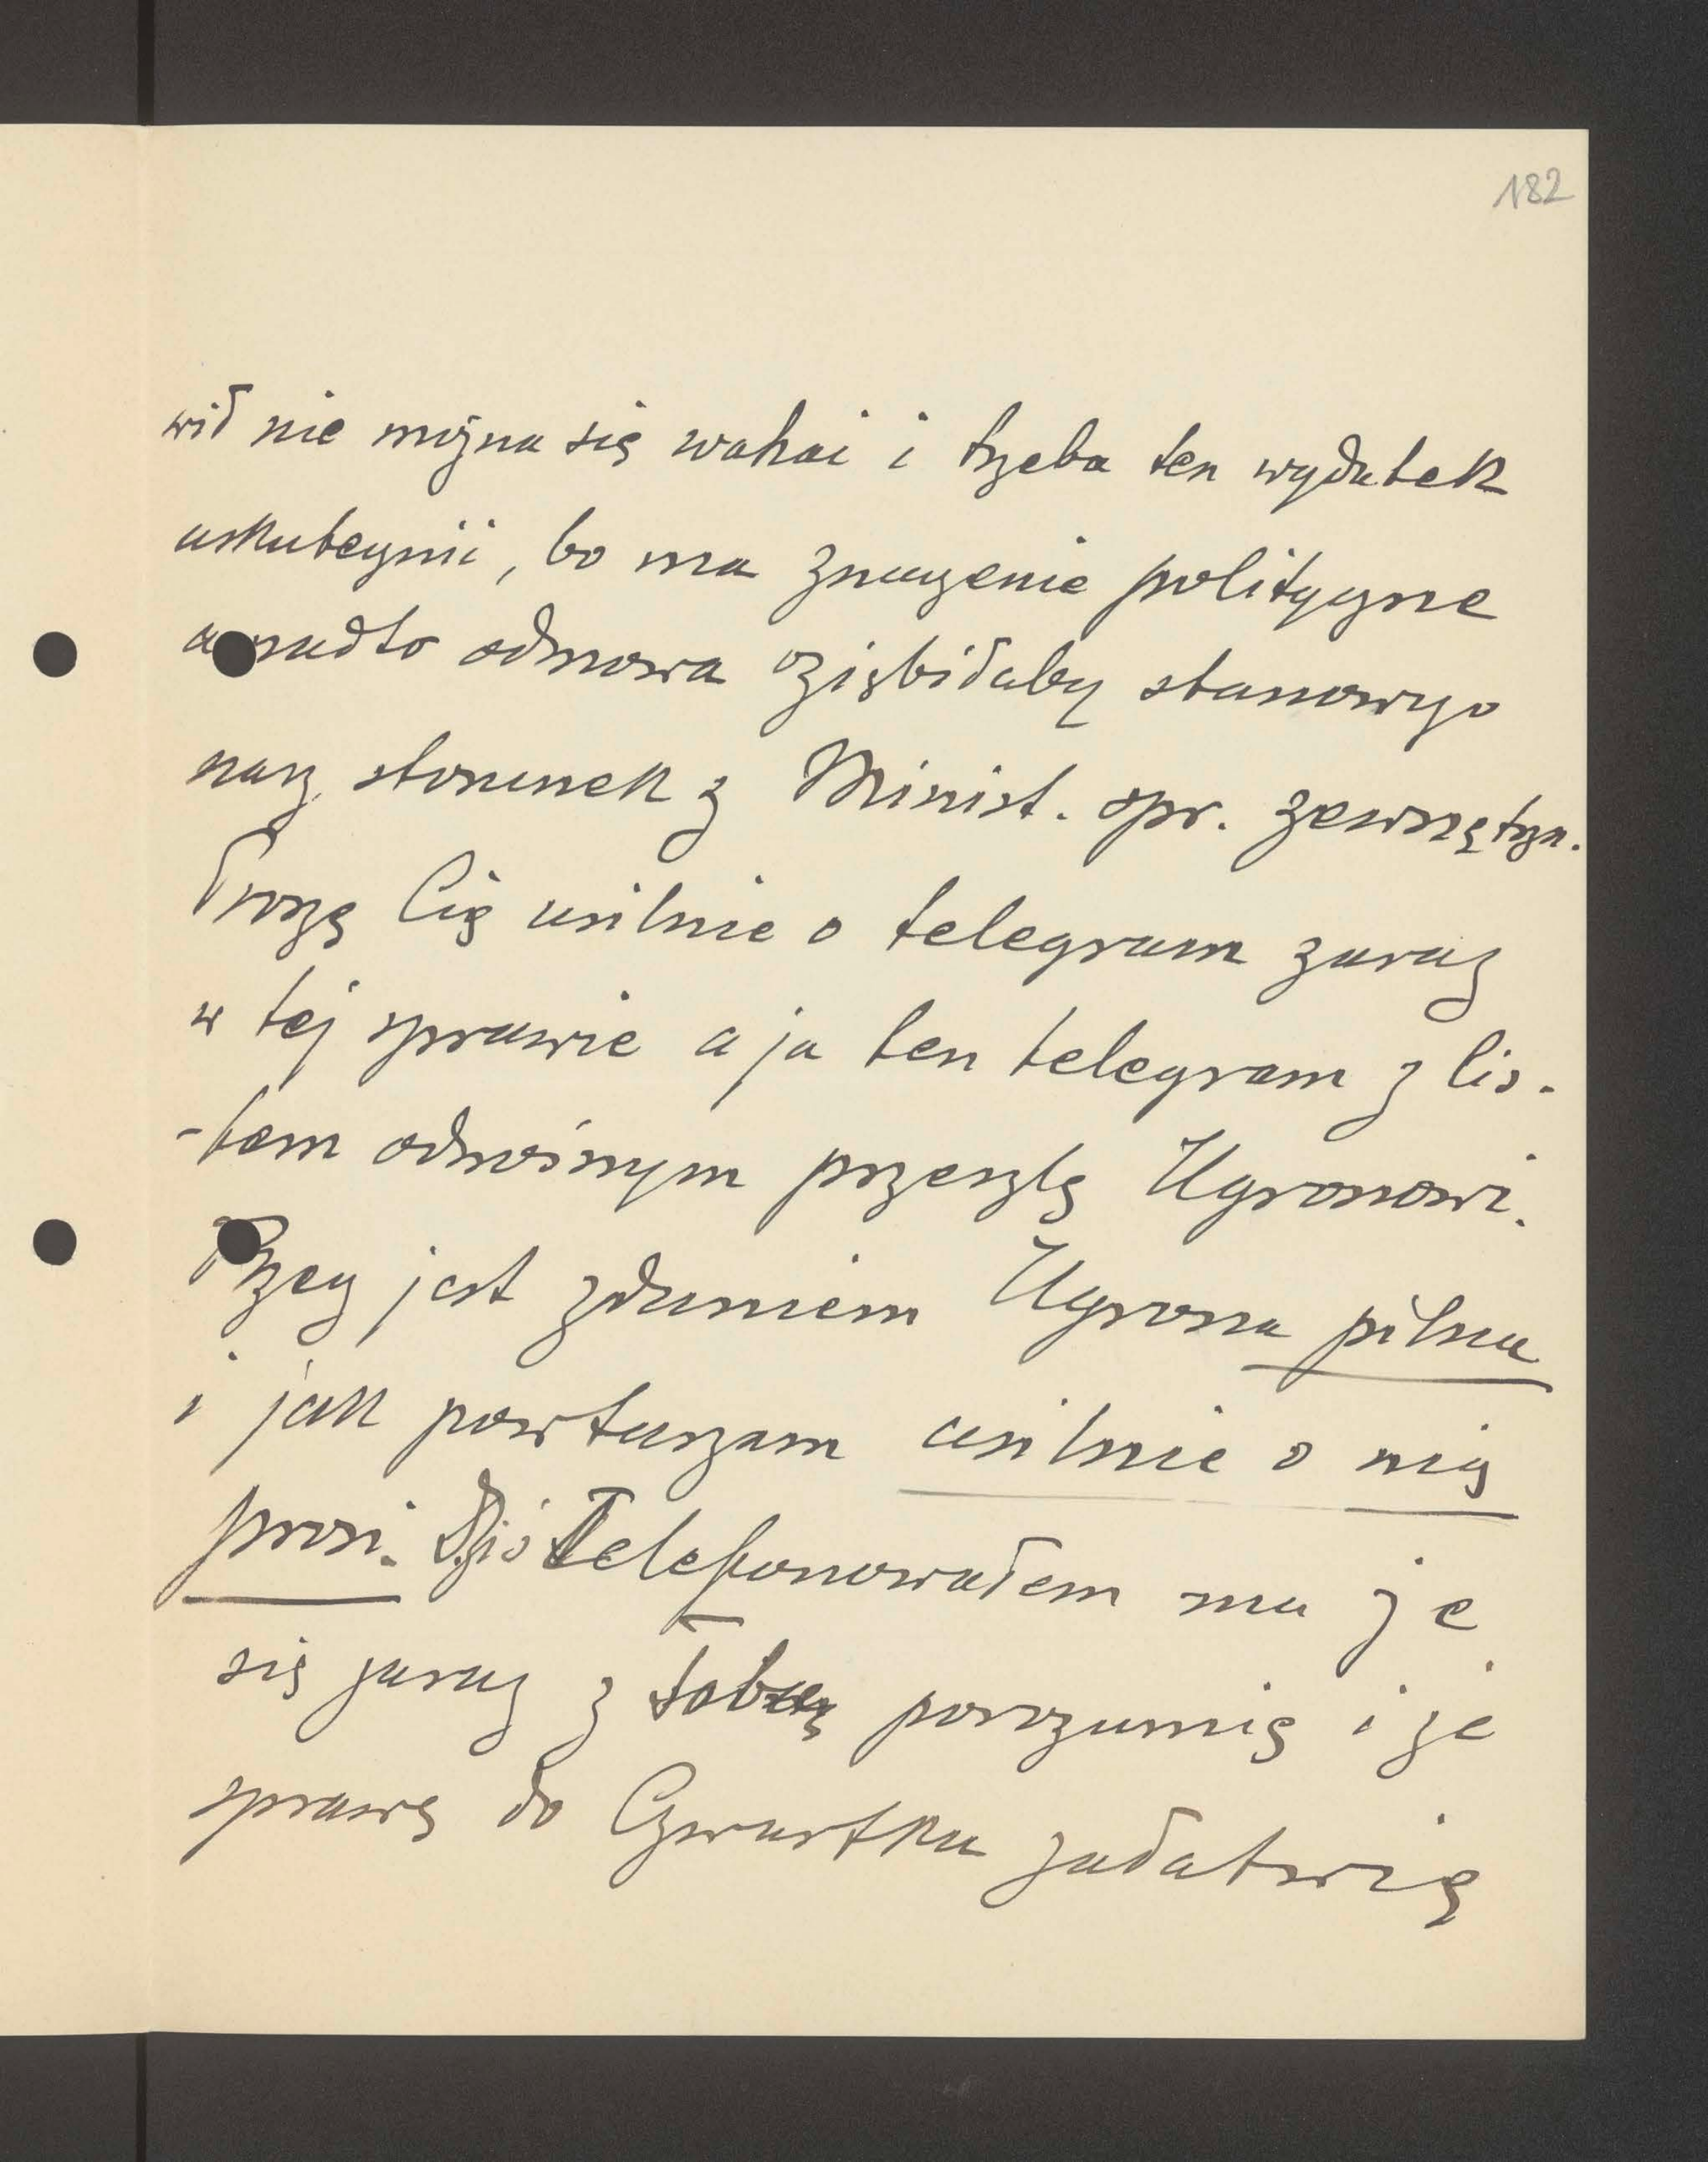 182
wił nie można się wahać i trzeba ten wydatek
uskutecznić, bo ma znaczenie polityczne
a nadto odmowa oziębiłaby stanowczo
nasz stosunek z Minist. spr. zewnętrzn.
Proszę Cię usilnie o telegram zaraz
w tej sprawie a ja ten telegram z lis-
-tem odnośnym przeszlę Ugronowi.
Rzecz jest zdaniem Ugrona pilna
i jak powtarzam usilnie o nią
prosi. Dziś telefonowałem mu że
się zaraz z tobą porozumię i że
sprawę do Czwartku załatwię